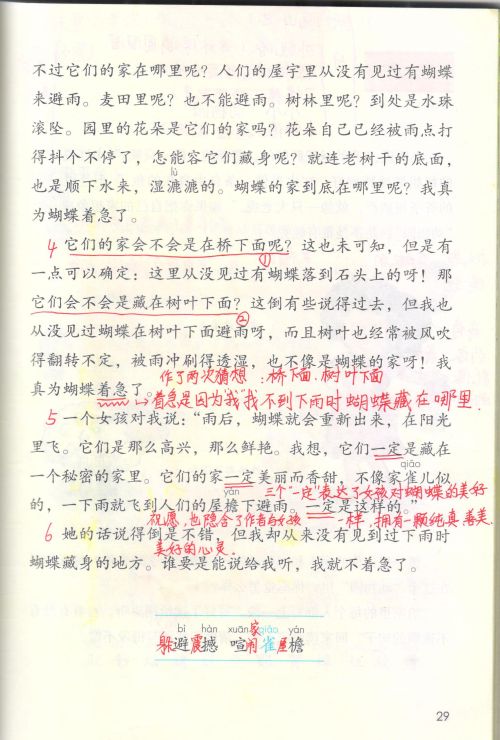 不过它们的家在哪里呢？人们的屋宇里从没有见过有蝴蝶
来避雨。麦田里呢？也不能避雨。树林里呢？到处是水珠
滚坠。园里的花朵是它们的家吗？花朵自己已经被雨点打
得抖个不停了，怎能容它们藏身呢？就连老树干的底面，
lù
也是顺下水来，湿漉漉的。蝴蝶的家到底在哪里呢？我真
为蝴蝶着急了。
4 它们的家会不会是在桥下面呢？这也未可知，但是有
①
一点可以确定：这里从没见过有蝴蝶落到石头上的呀！那
它们会不会是藏在树叶下面？这倒有些说得过去，但我也
②
从没见过蝴蝶在树叶下面避雨呀，而且树叶也经常被风吹
得翻转不定，被雨冲刷得透湿，也不像是蝴蝶的家呀！我
作了两次猜想：桥下面、树叶下面
真为蝴蝶着急了。
着急是因为“我”找不到下雨时蝴蝶藏在哪里.
5 一个女孩对我说：“雨后，蝴蝶就会重新出来，在阳光
里飞。它们是那么高兴，那么鲜艳。我想，它们一定是藏在
qiāo
一个秘密的家里。它们的家一定美丽而香甜，不像家雀儿似
yán 三个“一定”表达了女孩对蝴蝶的美好
的，一下雨就飞到人们的屋檐下避雨。一定是这样的。”
祝愿，也隐含了作者与女孩一样，拥有一颗纯真善美、
6 她的话说得倒是不错，但我却从来没有见到过下雨时
美好的心灵.
蝴蝶藏身的地方。谁要是能说给我听，我就不着急了。
bì hàn xuān家qiāo yán
躲避震撼 喧闹雀屋檐
29